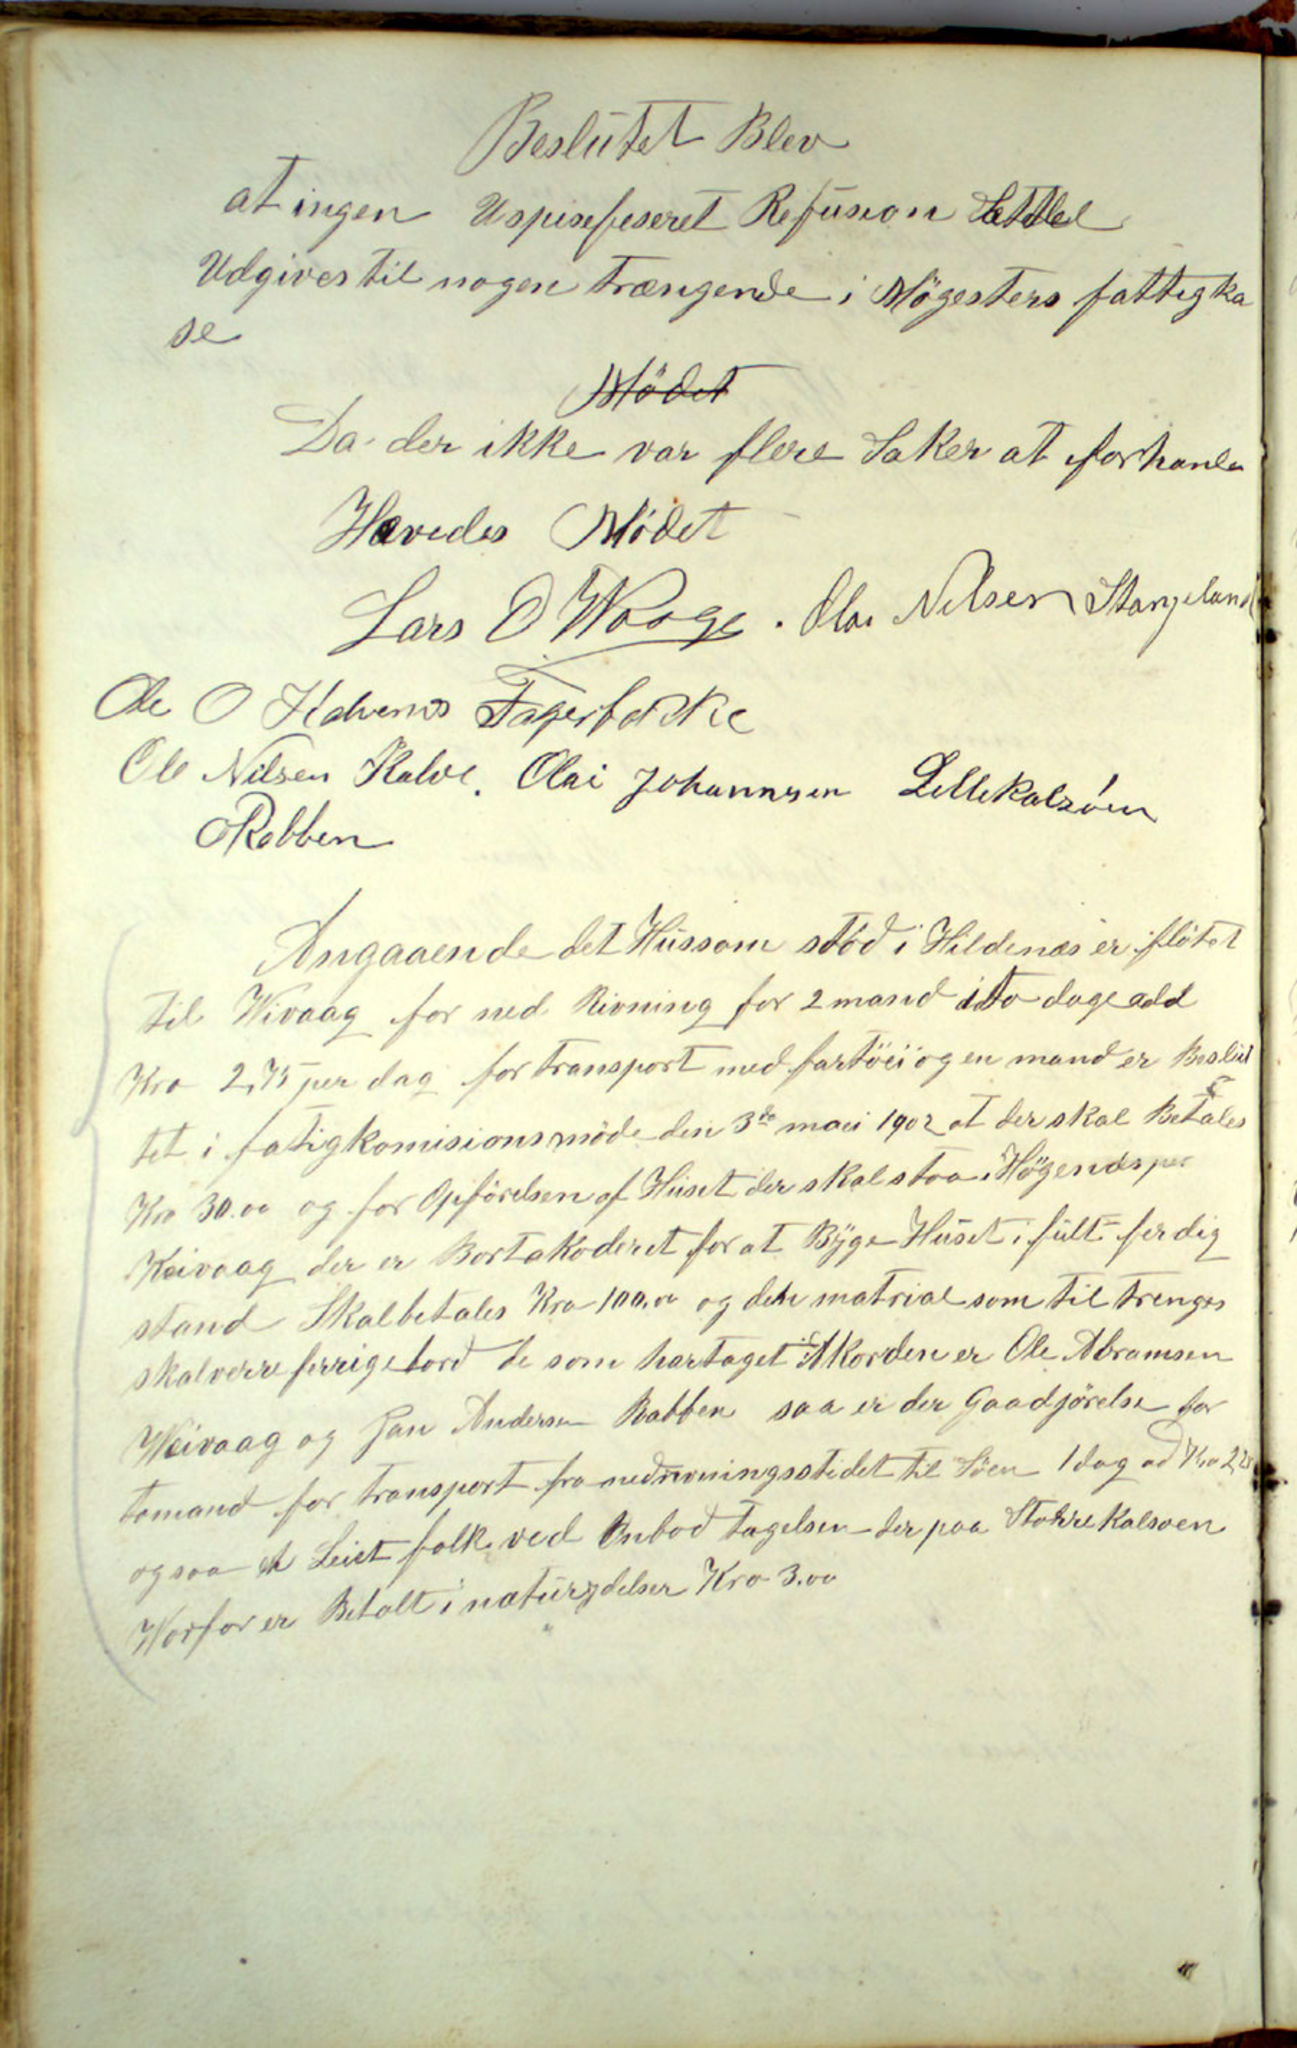 Beslutet Blev
at ingen Uspisefeseret Refusion Settel
Udgives til nogen trængende i Møgesters fattigka
se
Mødet
Da der ikke var flere Saker at forhanle
Hævedes Mødet
Lars O Waage. Olai Nilsen Stangeland
Ole O Kalvenes Fagerbakke
Ole Nilsen Kalve. Olai Johannsen Lillekalsøen
Rabben
Angaaende det Hus som stod i Hildenæs er fløtet
til Wivaag for ned Rivning for 2 mand i to dage add
Kro 2,75 per dag for transport med fartøi og en mand er Beslut
tet i fatigkomisionsmøde den 3de maei 1902 at der skal Betales
Kro 30.00 og for Opførelsen af Huset der skal staa i Høgenæs per
Keivaag der er Bortakoderet for at Byge Huset i fult ferdig
stand Skal betales Kro 100.00 og den matrial som til trenges
skal verre ferrige bord de som har taget Akorden er Ole Abramsen
Weivaag og Jan Andersen Rabben saa er der Gaadjørelse for
tomand for transport fra nedrivningsstedet til Søen 1 dag ad Kro 2,25
og saa Leiet folk ved Onbod tagelsen der paa Storre Kalsøen
Worfor er Betalt i naturydelser Kro 3.00